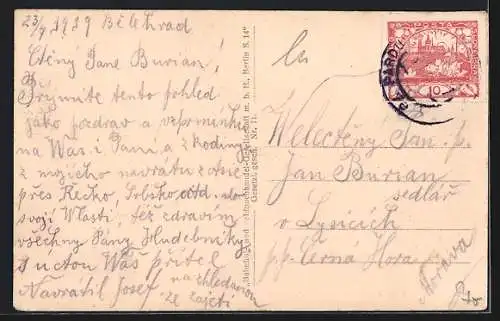 23/7 1919 Bělehrad
Ctěný Pane Burian!
Přijměte tento pohled
jako pozdrav a vzpomínku
na Wás i Paní a Rodiny
z mojého navrátu z Asie
přes Řecko, Srbsko atd. do
svojí Wlasti, též zdravím
všechny Pány Hudebníky
S úctou Wáš přítel
Navrátil Josef nashledanou
ze zajetí
Berlin S. 14
Gesetzl. gesch. Nr. 11.
POŠTA
10
Welectěný Pan. p.
Jan Burian
sedlář
v Lysicích
p. p. Černá Hora
Morava